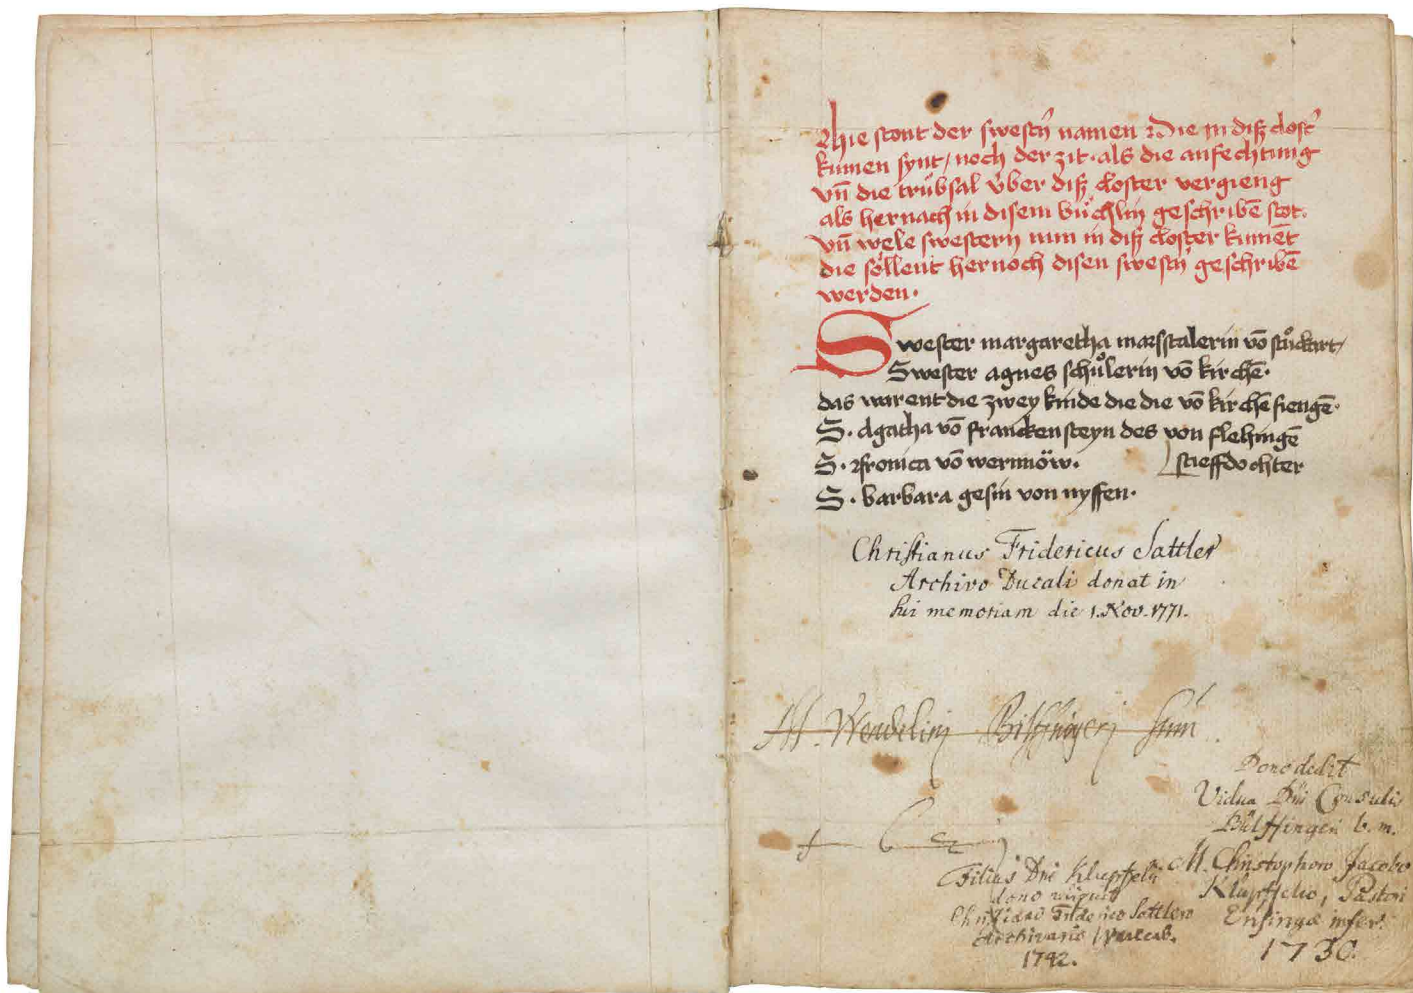 Hie stont der swestern namen Die in diß closter
kumen synt / noch der zit · als die anfechtung
vn̄ die trůbsal v̊ber diß closter vergieng
als hernach in disem bůchlin geschribē stot.
vn̄ wele swestern nun in diß closter kumēt
die söllent hernoch disen swestern geschribē
werden ·
Swester margaretha marsstalerin vō stůckart /
Swester agnes schůlerin vō kirchē ·
das warent die zwey kinde die die vō kirchē fiengē ·
S · Agatha vō franckensteyn des von flehingē
stieffdochter
S · fronica vō wermöw ·
S · barbara gesin von nyffen ·
Christianus Fridericus Sattler
Archivo Ducali donat in
sui memoriam die 1. Nov. 1771.
M. Wendelinj Bilffingerj sum
Dono dedit
Vidua Dni Consulis
Bülffingeri b. m.
M. Christophoro Jacobo
Klüpffelio, Pastori
Ensingæ infer.
1736.
Filius Dni Klüpffelii
dono
Christiano Friderico Sattlero
Archivario
1742.